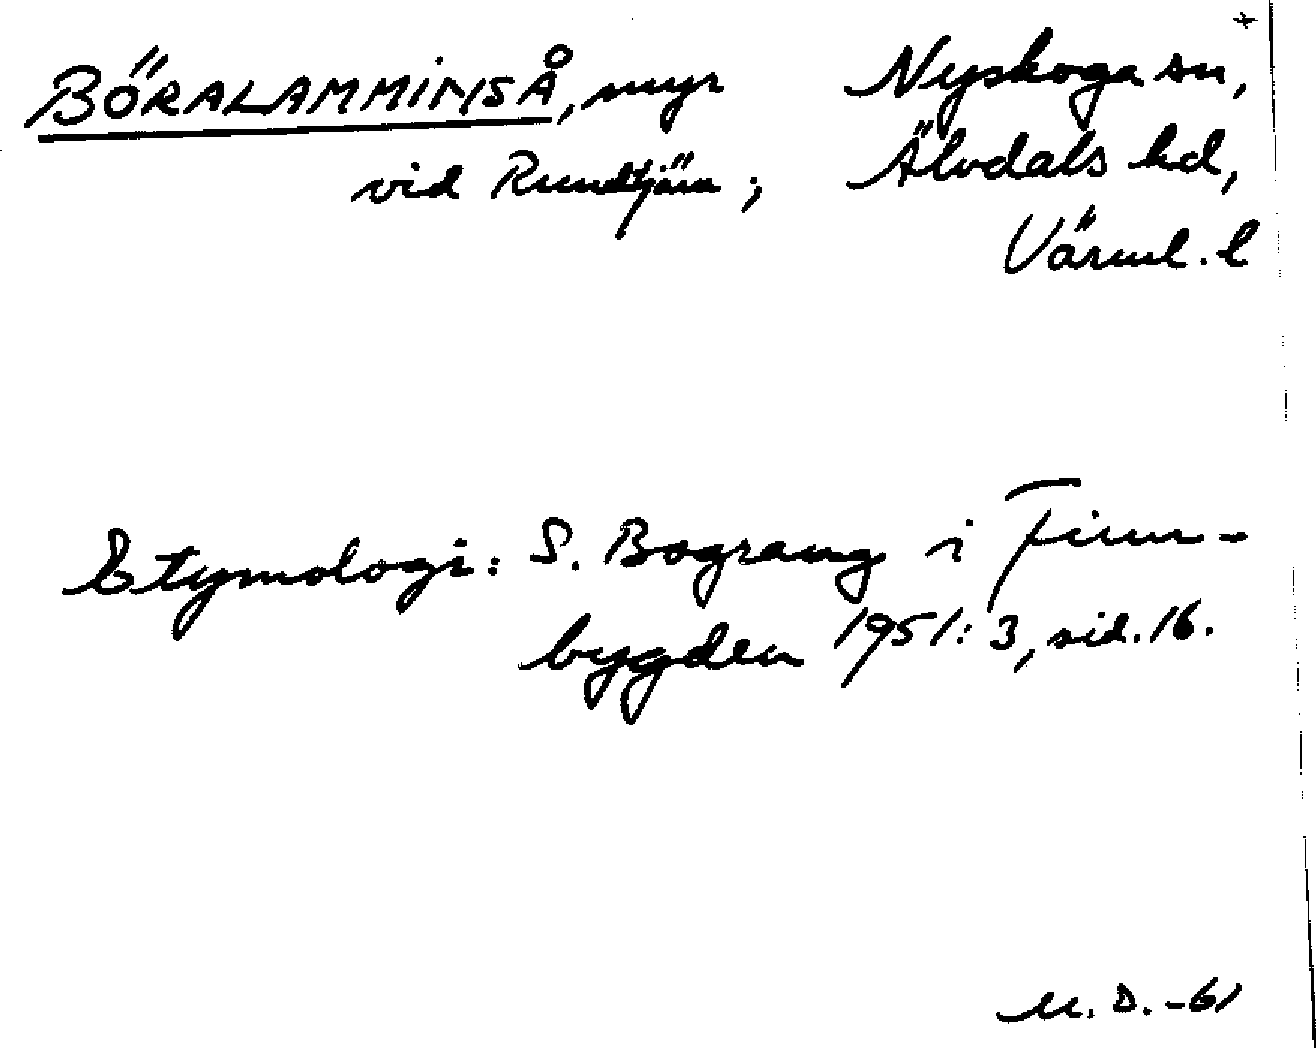 BÖRALAMMINSÅ, myr Nyskoga sn,
vid Rundtjärn; Älvdals hd,
Värml. l
Etymologi: S. Bograng i Finn-
bygden 1951: 3, sid. 16.
M. D. -61